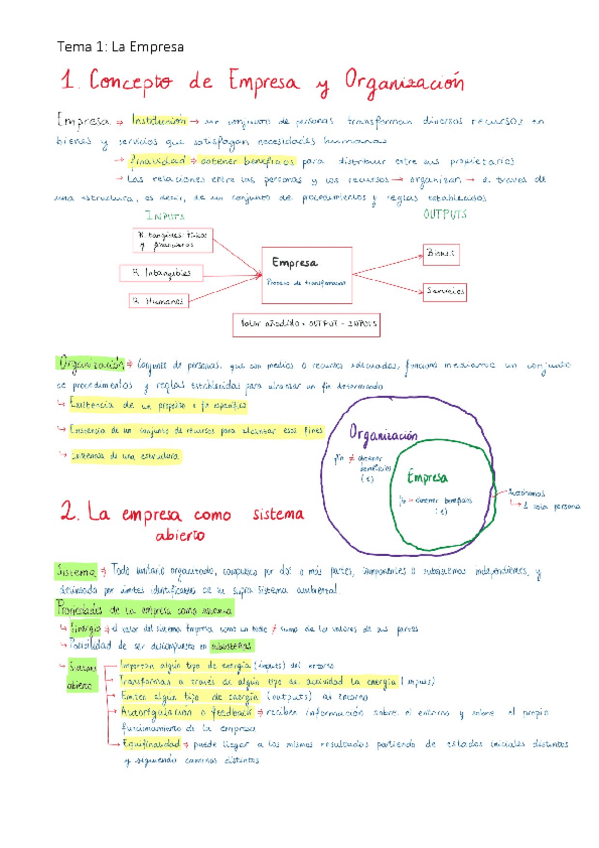 Tema 1: La Empresa
1. Concepto de Empresa y Organización
Empresa → Institución → un conjunto de personas transforman diversos recursos en
bienes y servicios que satisfagan necesidades humanas
→ finalidad → obtener beneficios para distribuir entre sus propietarios
→ Las relaciones entre las personas y los recursos → organizan → a través de
una estructura, es decir, de un conjunto de procedimientos y reglas establecidos
INPUTS OUTPUTS
R. tangibles: físicos
y financieros
R. Intangibles
R. Humanos
Empresa
Proceso de transformación
Bienes
Servicios
Valor añadido = OUTPUT - INPUTS
Organización → Conjunto de personas, que con medios o recursos adecuados, funciona mediante un conjunto
de procedimientos y reglas establecidas para alcanzar un fin determinado
↳ Existencia de un propósito o fin específico
↳ Existencia de un conjunto de recursos para alcanzar esos fines
↳ Existencia de una estructura
Organización
fin ≠ obtener
beneficios
(€)
Empresa
fin = obtener beneficios
(€)
Autónomos
↳ 1 sola persona
2. La empresa como sistema
abierto
Sistema → Todo unitario organizado, compuesto por dos o más partes, componentes o subsistemas independientes, y
delineado por límites identificables de su supra sistema ambiental
Propiedades de la empresa como sistema
↳ Sinergia → el valor del sistema empresa como un todo ≠ suma de los valores de sus partes
↳ Posibilidad de ser descompuesto en subsistemas
↳ Sistema
abierto
Importan algún tipo de energía (inputs) del entorno
Transforman a través de algún tipo de actividad la energía (inputs)
Emiten algún tipo de energía (outputs) al entorno
Autorregulación o feedback → reciben información sobre el entorno y sobre el propio
funcionamiento de la empresa
Equifinalidad → puede llegar a los mismos resultados partiendo de estados iniciales distintos
y siguiendo caminos distintos